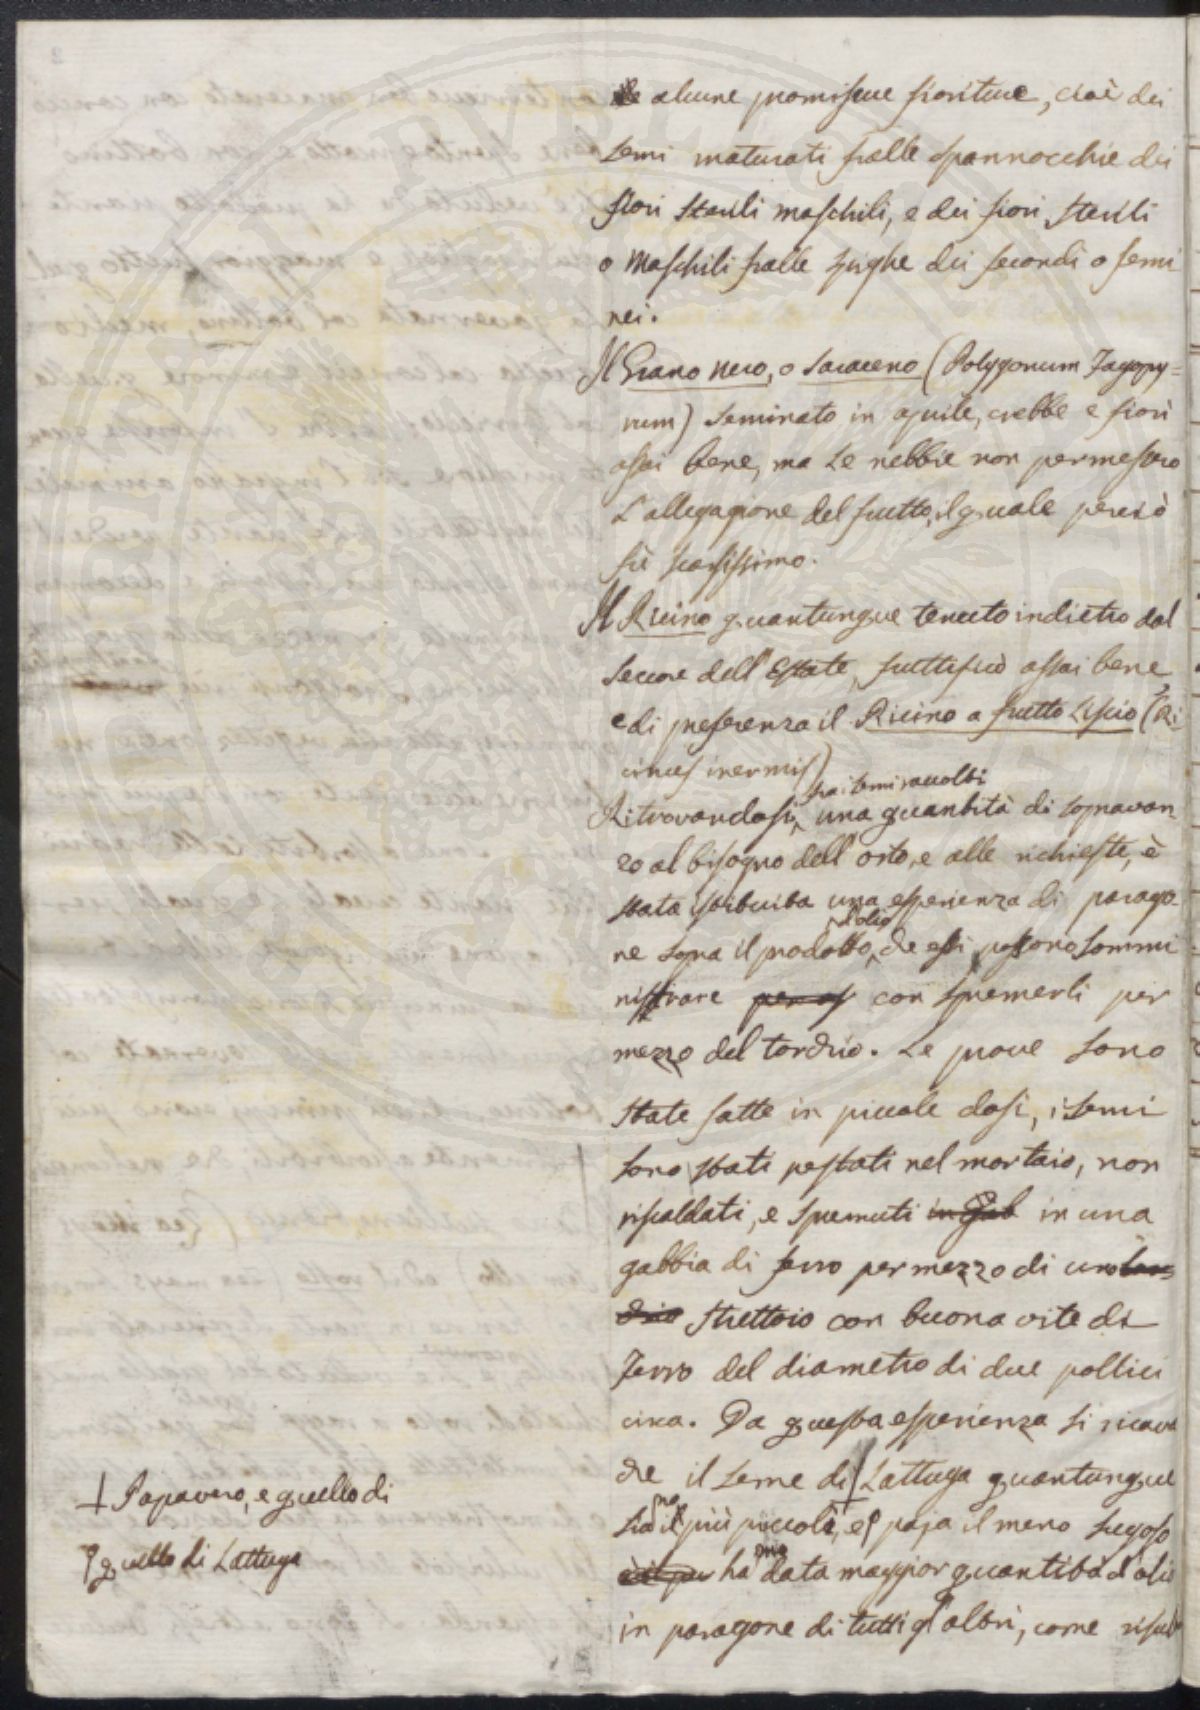 de alcune promiscue fioriture, cioè dei
semi maturati fralle spannocchie dei
fiori sterili maschili, e dei fiori sterili
o Maschili fralle spighe dei secondi o femi
nei.
Il Grano nero, o Saraceno (Polygonum Fagopy=
rum) seminato in aprile, crebbe e fiorì
assai bene, ma le nebbie non permessero
L'allegagione del frutto, il quale perciò
fù scarsissimo.
Il Ricino quantunque tenuto indietro dal
seccore dell'Estate, fruttificò assai bene,
e di preferenza il Ricino a frutto Liscio (Ri
cinus inermis)
fra i semi raccolti
Ritrovandosi, una quantità di sopravan
zo al bisogno dell'orto, e alle richieste, è
stata istituita una esperienza di parago
d'olio
ne sopra il prodotto, che essi possono sommi
nistrare per es con spremerli per
mezzo del torchio. Le prove sono
state fatte in piccole dosi, i semi
sono stati pestati nel mortaio, non
riscaldati, e spremuti in Gab in una
gabbia di ferro per mezzo di uno tor=
chio strettoio con buona vite di
Ferro del diametro di due pollici
circa. Da questa esperienza si ricava
che il seme di Lattuga quantunque
no
sia il più piccoli, e paja il meno sugoso
ha data maggior quantità d'olio
in paragone di tutti gl'altri, come risul
+ Papavero, e quello di
quello di Lattuga